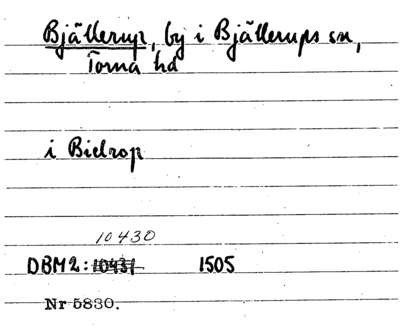 Bjällerup, by i Bjällerups sn,
Torna hd
i Bielrop
10430
DBM2: 10431 1505
Nr 5830.